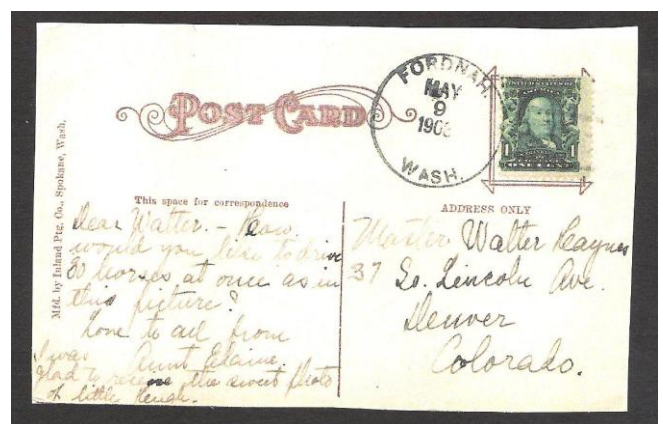 POST CARD
FORDNAH.
MAY
9
WASH.
1
1
ONE CENT
Mfd. by Inland Ptg. Co., Spokane, Wash.
This space for correspondence
Dear Walter. - How
would you like to drive
30 horses at once as in
this picture?
Love to all from
Aunt Elaine.
I was
glad to receive the sweet photo
of little Hugh.
ADDRESS ONLY
Master Walter
37 So. Lincoln Ave.
Denver
Colorado.